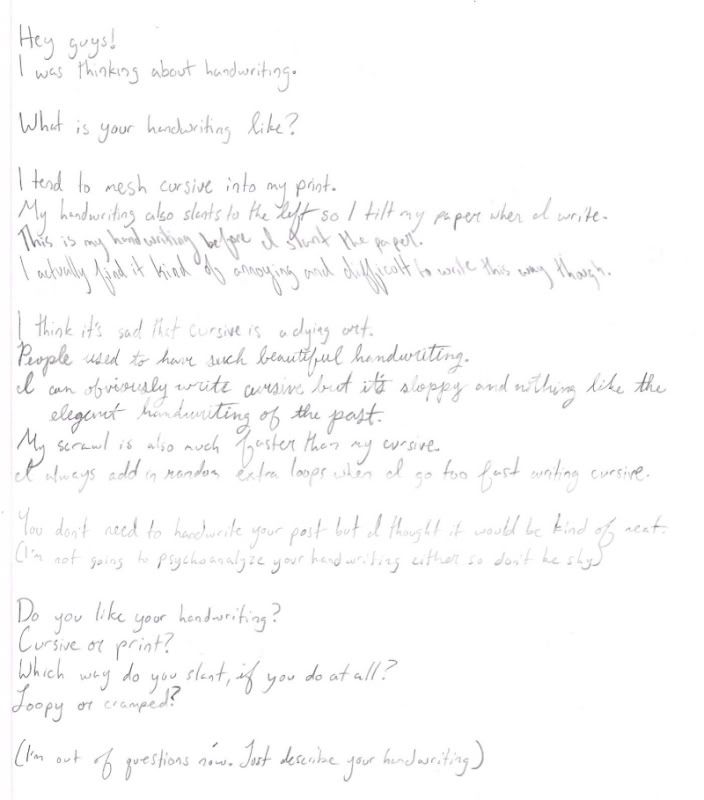 Hey guys!
I was thinking about handwriting.
What is your handwriting like?
I tend to mesh cursive into my print.
My handwriting also slants to the left so I tilt my paper when I write.
This is my handwriting before I slant the paper.
I actually find it kind of annoying and difficult to write this way though.
I think it's sad that cursive is a dying art.
People used to have such beautiful handwriting.
I can obviously write cursive but it's sloppy and nothing like the
elegent handwriting of the past.
My scrawl is also much faster than my cursive.
I always add in random extra loops when I go too fast writing cursive.
You don't need to handwrite your post but I thought it would be kind of neat.
(I'm not going to psychoanalyze your handwriting either so don't be shy)
Do you like your handwriting?
Cursive or print?
Which way do you slant, if you do at all?
Loopy or cramped?
(I'm out of questions now. Just describe your handwriting)